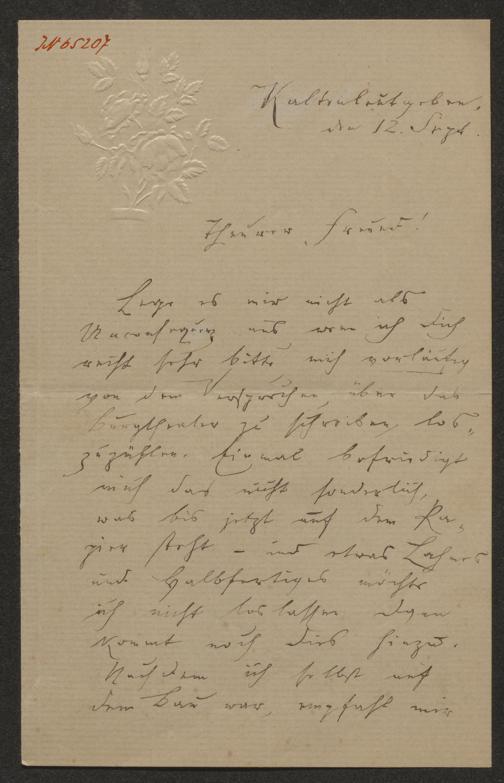 IN 65207
Kaltenleutgeben,
den 12. Sept.
Theurer Freund!
Lege es mir nicht als
Unconsequenz aus wenn ich Dich
recht sehr bitte, mich vorläufig
von dem Versprechen, über das
Burgtheater zu schreiben, los-
zuzählen. Einmal befriedigt
mich das nicht sonderlich,
was bis jetzt auf dem Pa-
pier steht – und etwas Lahmes
und Halbfertiges möchte
ich nicht loslassen. Dann
kommt noch dies hinzu.
Nachdem ich selbst auf
dem Bau war, empfahl mir